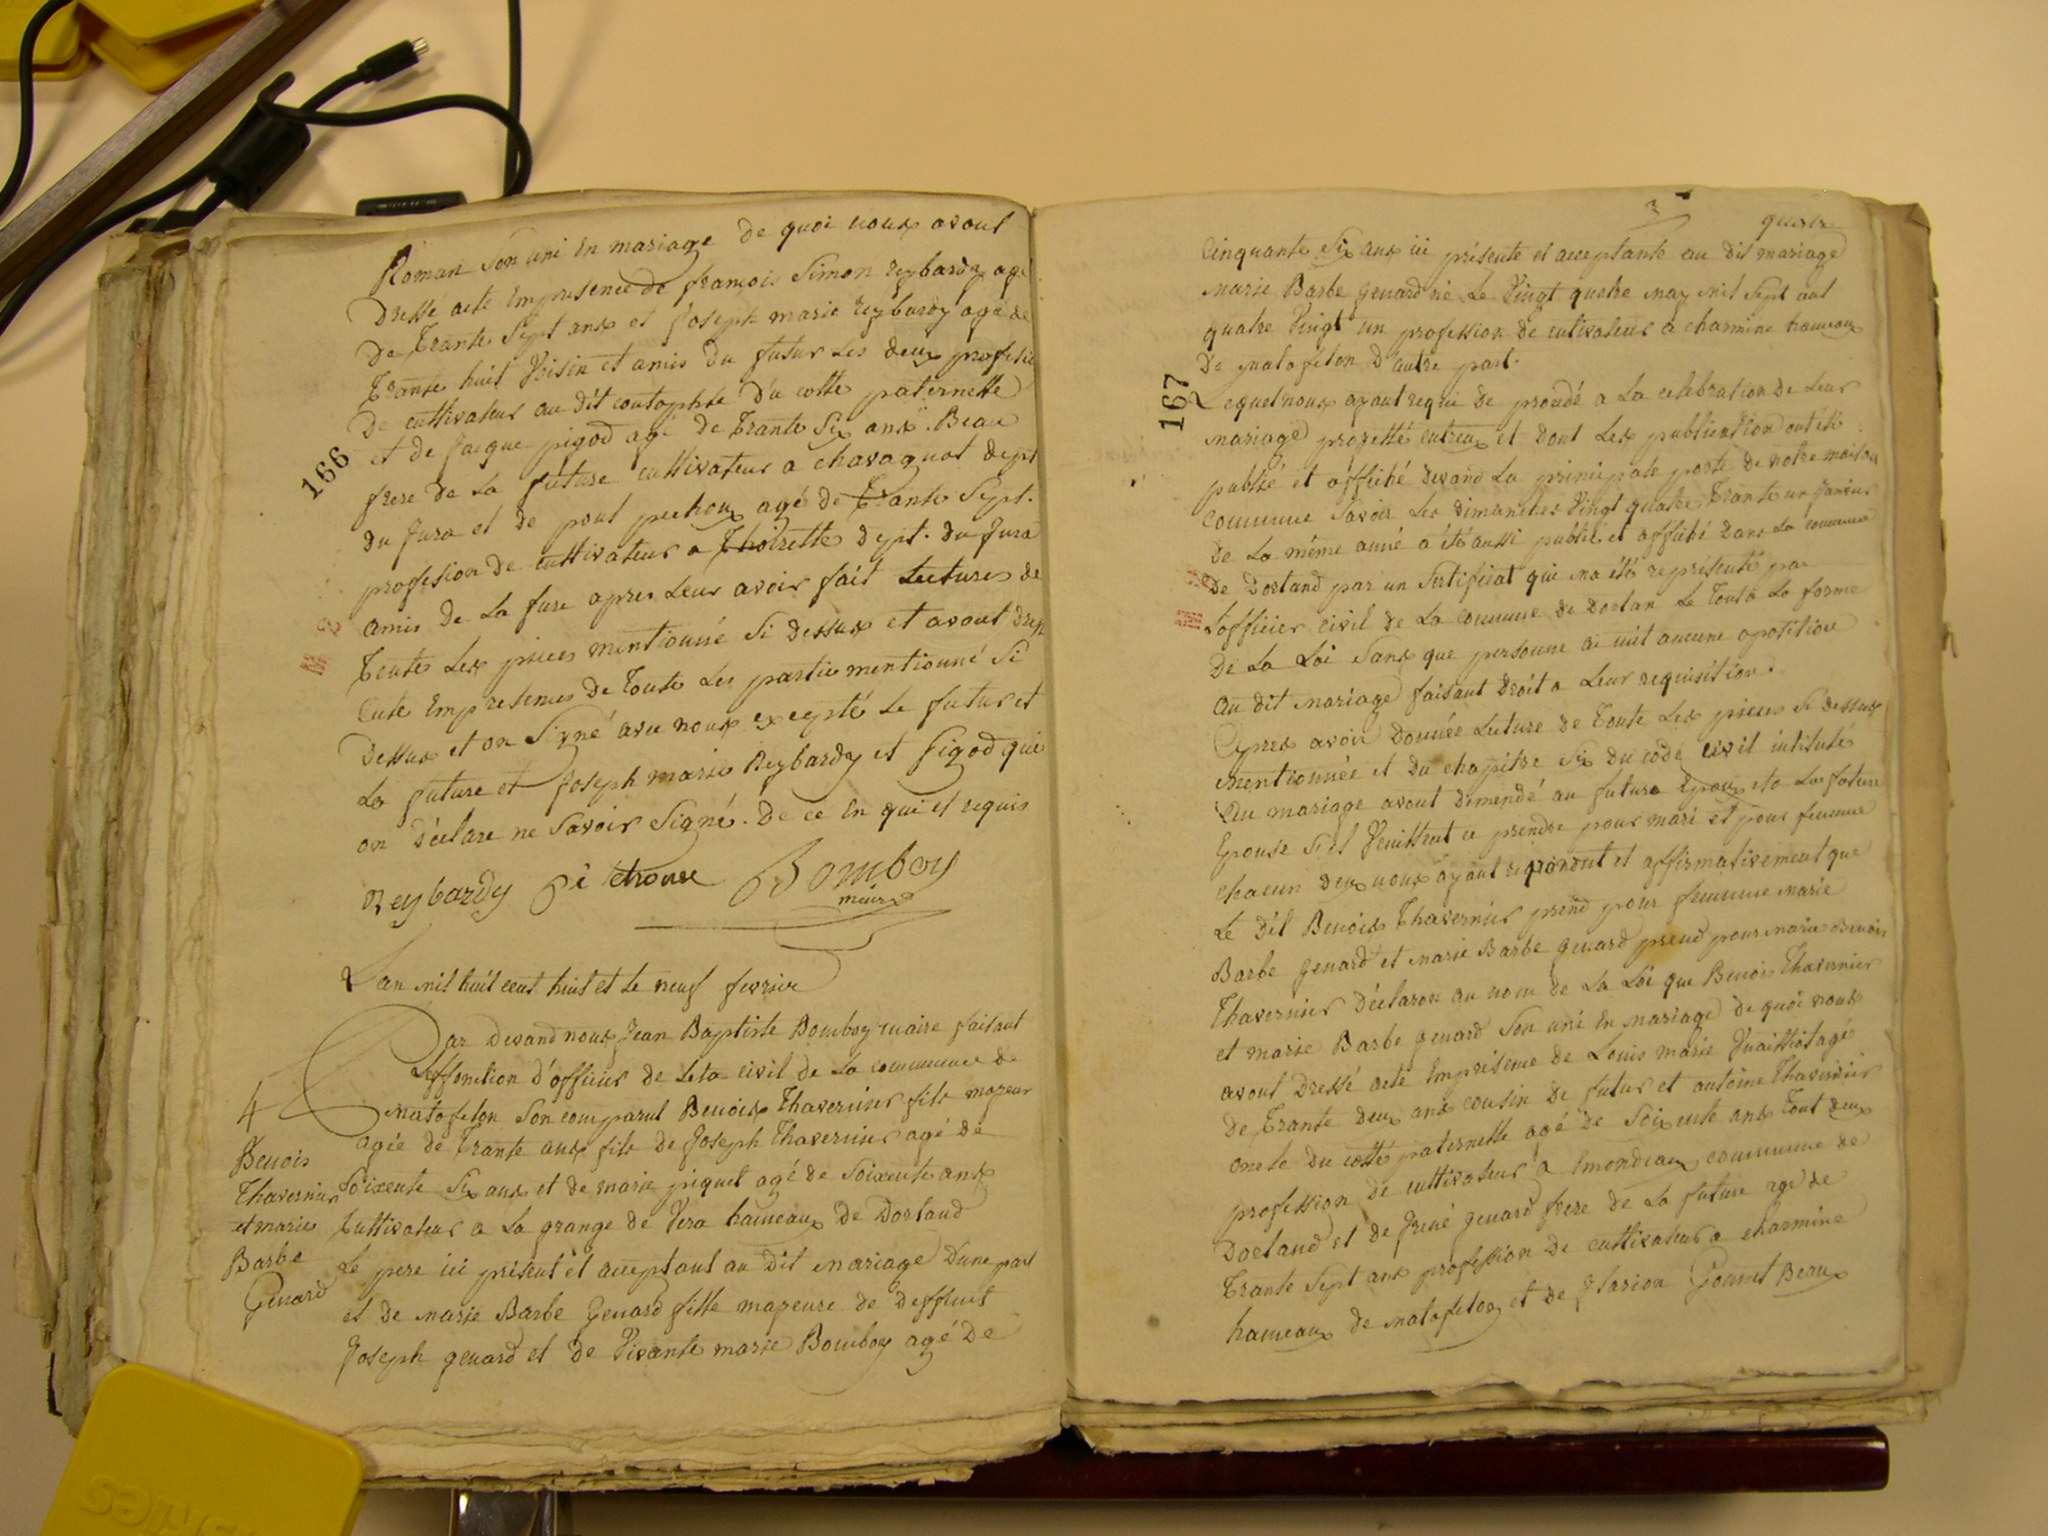 166
Roman son uni en mariage de quoi nous avont
Dressé acte Empresence de francois Simon reybardy agé
De Trante Sept ans et Joseph marie reybardy agé de
Trante huit Voisin et amis du futur Les deux profesio
De cultivateur au dit coutophle du cotte paternelle
et de Jacque pigod agé de Trante Six ans Beau
frere de la future cultivateur a chavagnat dept
du Jura et de pont agé de Trante Sept.
profesion de cultivateur a Thoirette dept. du Jura
amis de la fure apres Leur avoir fait Lectures de
Toutes Les pieces mentionné Si dessus et avont
acte Empresence de Toute Les partie mentionné Si
Dessus et on Signé avec nous excepté Le futur et
La future et Joseph marie Reybardy et pigod qui
on déclare ne Savoir Signé. De ce En qui et requis
Reybardy Bomboy
maire
Lan mil huit cent huit et le neuf fevrier
Par devand nous Jean Baptiste Bomboy maire faisant
Leffonction d'officier de Leta civil de la commune de
4
matafelon Son comparut Benoix Thavernier fils mageur
agée de Trante ans fils de Joseph Thavernier agé de
Benois
Thavernier
et marie
Barbe
Genard
Soixente Six ans et de marie piquet agé de Soixente ans
Cultivateur a La grange de Vera hameaux de Dortand
Le pere ici présent et acceptant au Dit mariage Dune part
et de marie Barbe Genard fille mageure de deffunt
Joseph genard et de Vivante marie Bomboy agé de
3
167
Cinquante Six ans ici présente et acceptante au dit mariage
marie Barbe genard né Le Vingt quatre may mil Sept cent
quatre Vingt un profession de cultivateur a charmine hameaux
De matafelon D'autre part.
Lequel nous ayant requi de proudé a La celebration de Leur
mariage projetté entreux et dont Les publication ont été
publié et affiché devand La principale porte de notre maison
commune Savoir Les dimanches Vingt quatre Trante un Janvier
de La même anné a été aussi publié et affiché dans La commune
De Dortand par un Sertificat qui ma été représenté par
Lofficier civil de La commune de Dortan Le Tout a La forme
De La Loi Sans que personne ai mit aucune opotition
au dit mariage faisant Droit a Leur requisition.
Apres avoir Donnée Lecture de Toute Les pieces Si dessus
mentionnée et du chapitre Six du code civil intitulé
Du mariage avont demendé au future Epoux et a La future
Epouse Sil Veuillent ce prendre pour mari et pour femme
chacun deux nous ayant repondu et affirmativement que
Le dit Benoix Thavernier prend pour femme marie
Barbe genard et marie Barbe genard prend pour marie Benoix
Thavernier déclaron au nom de La Loi que Benoix Thavernier
et marie Barbe genard Son uni En mariage de quoi nous
avont Dressé acte Empresence de Louis marie Vuaillat agé
de Trante Deux ans cousin de futur et antoine Thavernier
oncle du cotté paternelle agé de Soixente ans Tout deux
profession de cultivateur a Emondeau commune de
Dortand et de René genard frere de La future agé de
Trante Sept ans profession de cultivateur a charmine
hameaux de matafelon et de Beaux